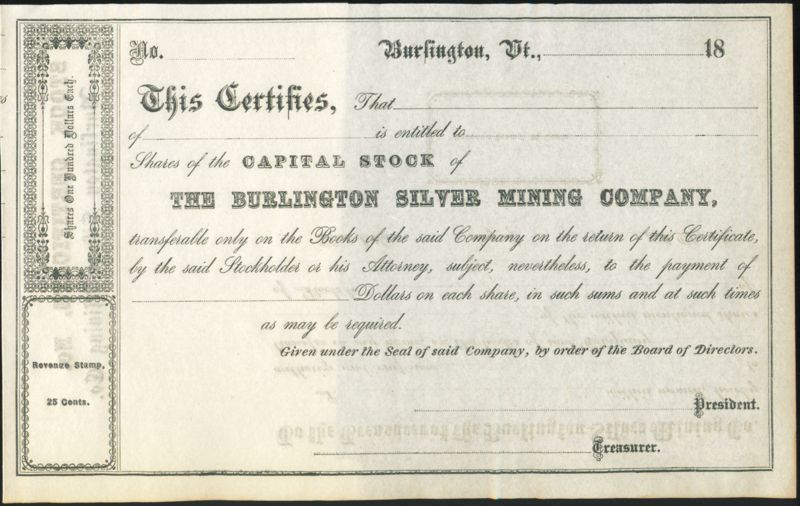 No. Burlington, Vt., 18
This Certifies, That
of is entitled to
Shares of the CAPITAL STOCK of
THE BURLINGTON SILVER MINING COMPANY,
transferable only on the Books of the said Company on the return of this Certificate,
by the said Stockholder or his Attorney, subject, nevertheless, to the payment of
Dollars on each share, in such sums and at such times
as may be required.
Given under the Seal of said Company, by order of the Board of Directors.
President.
Treasurer.
Shares One Hundred Dollars Each.
Revenue Stamp,
25 Cents.